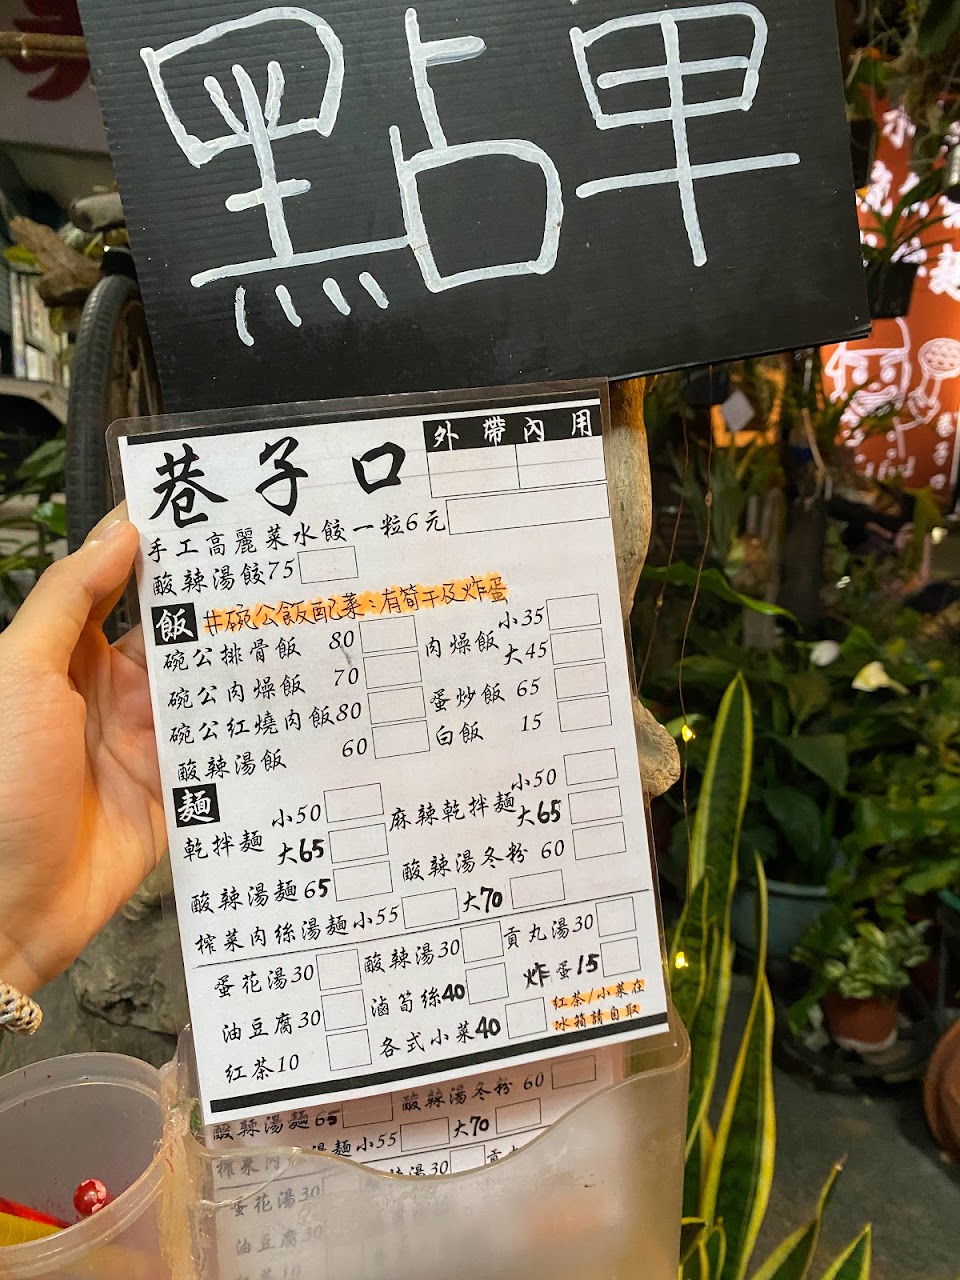 點單
巷子口
外帶 內用
手工高麗菜水餃一粒6元
酸辣湯餃75
飯 #碗公飯配菜:有筍干及炸蛋
碗公排骨飯 80
肉燥飯 小35
大45
碗公肉燥飯 70
蛋炒飯 65
碗公紅燒肉飯80
白飯 15
酸辣湯飯 60
麵
乾拌麵 小50
大65
麻辣乾拌麵 小50
大65
酸辣湯麵65
酸辣湯冬粉 60
榨菜肉絲湯麵小55 大70
蛋花湯30
酸辣湯30
貢丸湯30
油豆腐30
滷筍絲40
炸蛋15
紅茶10
各式小菜40
紅茶/小菜在
冰箱請自取
酸辣湯麵65
酸辣湯冬粉 60
湯麵小55 大70
蛋花湯30
湯30
貢
油豆腐30
紅茶10
巷子口